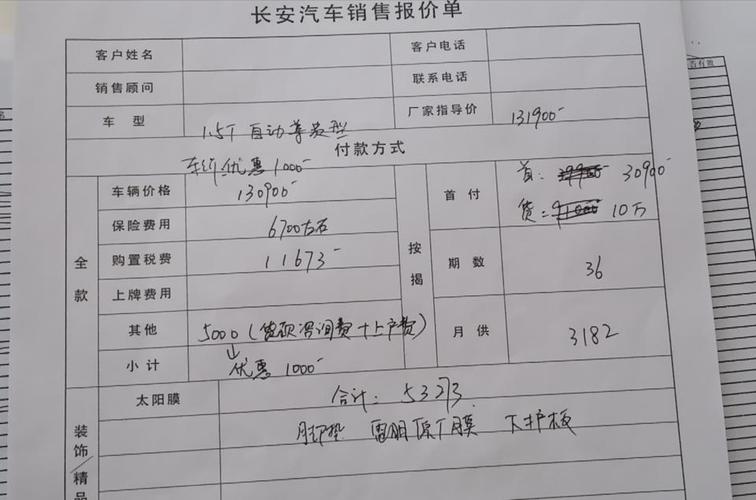 长安汽车销售报价单
客户姓名 客户电话
销售顾问 联系电话
车 型 1.5T 自动尊贵型 厂家指导价 131900-
付款方式
车价优惠1000-
全款 车辆价格 130900- 按揭 首付 首: 30900-
保险费用 6700左右 贷= 10万
购置税费 11673- 期数 36
上牌费用
其他 5000 (贷款咨询费+上户费) 月供 3182
小计 优惠1000-
装饰/精品 太阳膜 合计: 53273
脚垫 雷朋原厂膜 下护板